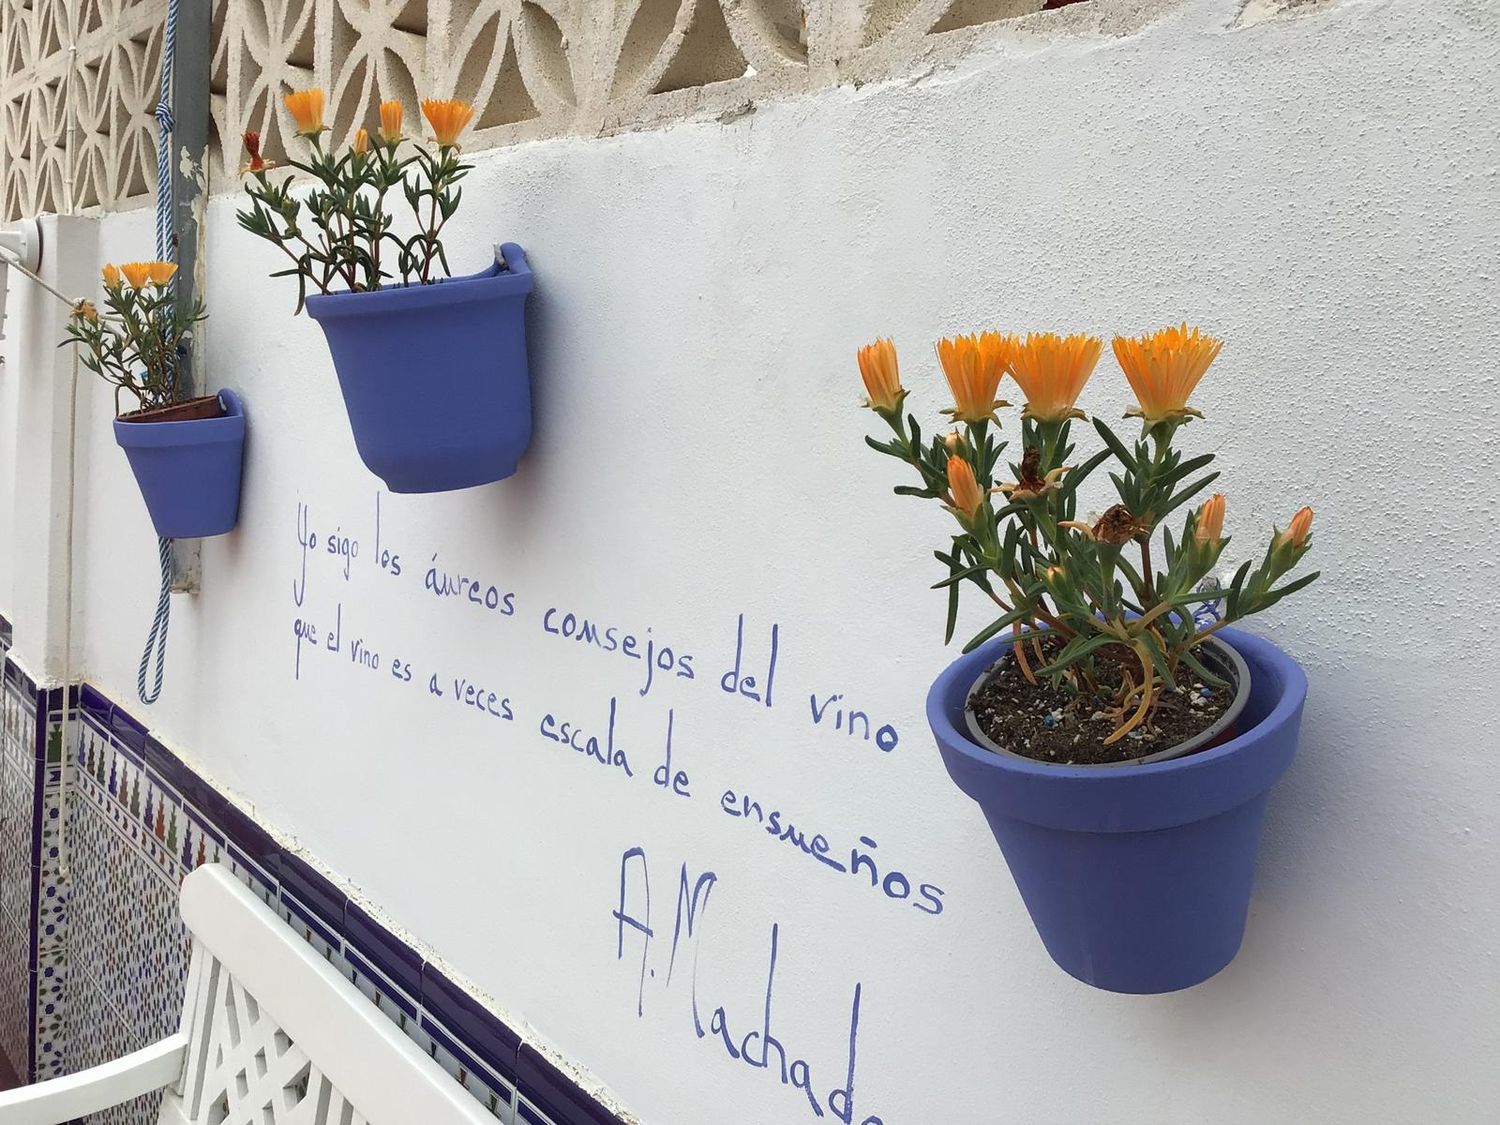 Yo sigo los áureos consejos del vino
que el vino es a veces escala de ensueños
A. Machado